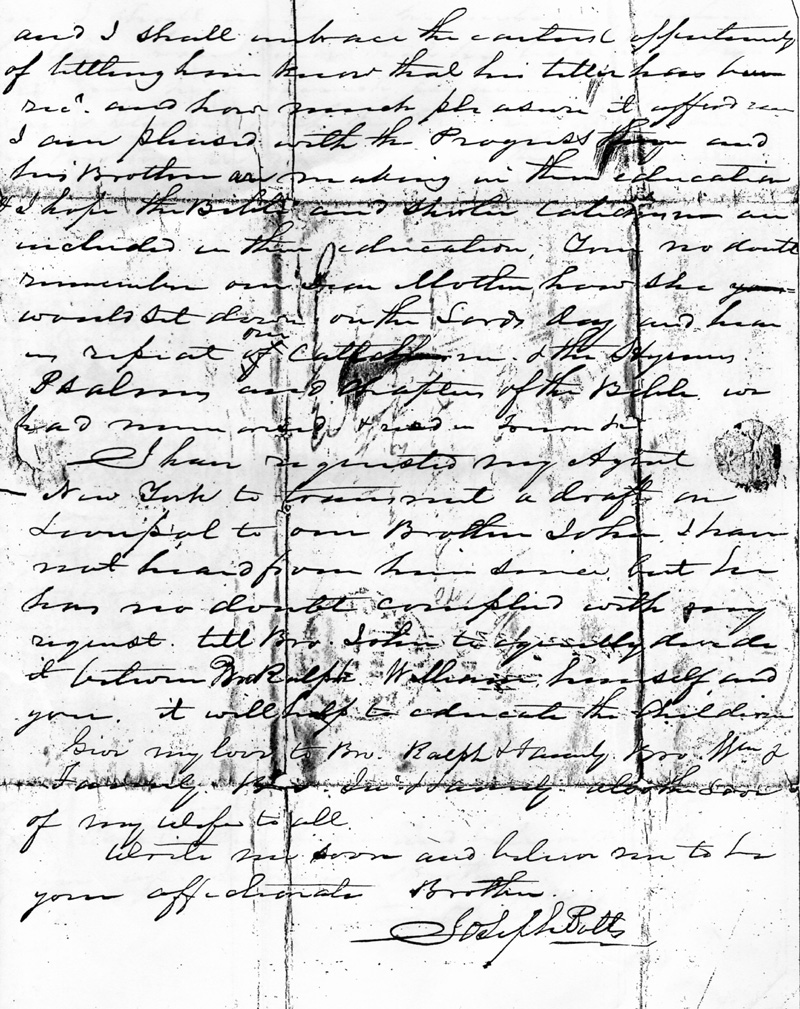 and I shall embrace the earliest opportunity
of letting him know that his letter has been
rec'd. and how much pleasure it afford me
I am pleased with the Progress and
his Brother are making in their education
& I hope the Bible and Shorter Catechism are
included in their education. You no doubt
remember our Dear Mother how she
would set down on the Lords day and hear
us repeat our Catechism & the Hymns
Psalms and Chapters of the Bible we
had memorised & read
I have requested my Agent
New York to transmit a draft on
Liverpol to our Brother John. I have
not heard from him since but he
has no doubt complied with my
request. tell Bro. John to equally divide
it between Bro Ralph William himself and
you. it will help to educate the Children
Give my love to Bro. Ralph & Family Bro. Wm &
Family Bro Jno & Family also the Love
of my Wife to all
Write me soon and believe me to be
your affectionate Brother.
Joseph Potts